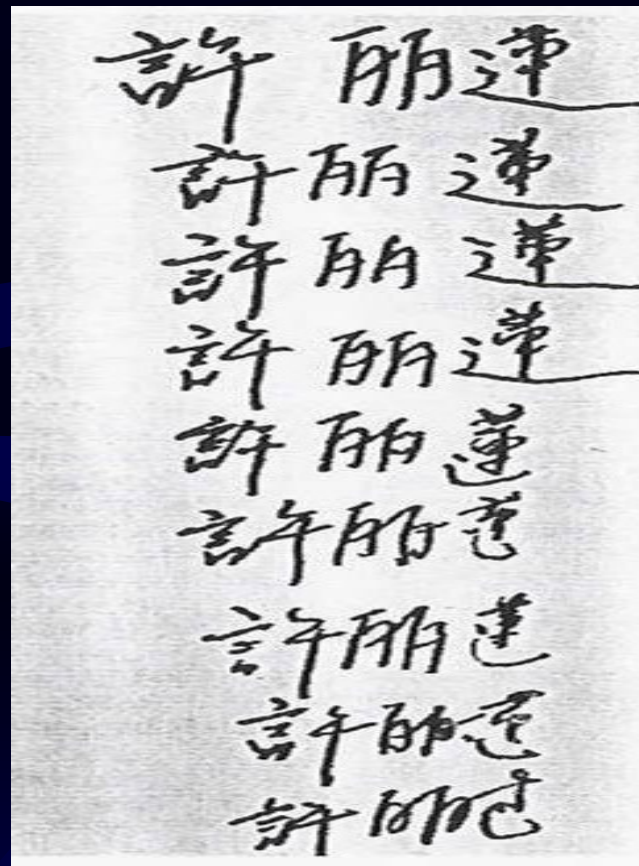 許丽蓮
許丽蓮
許丽蓮
許丽蓮
許丽蓮
許丽蓮
許丽蓮
許丽蓮
許丽蓮